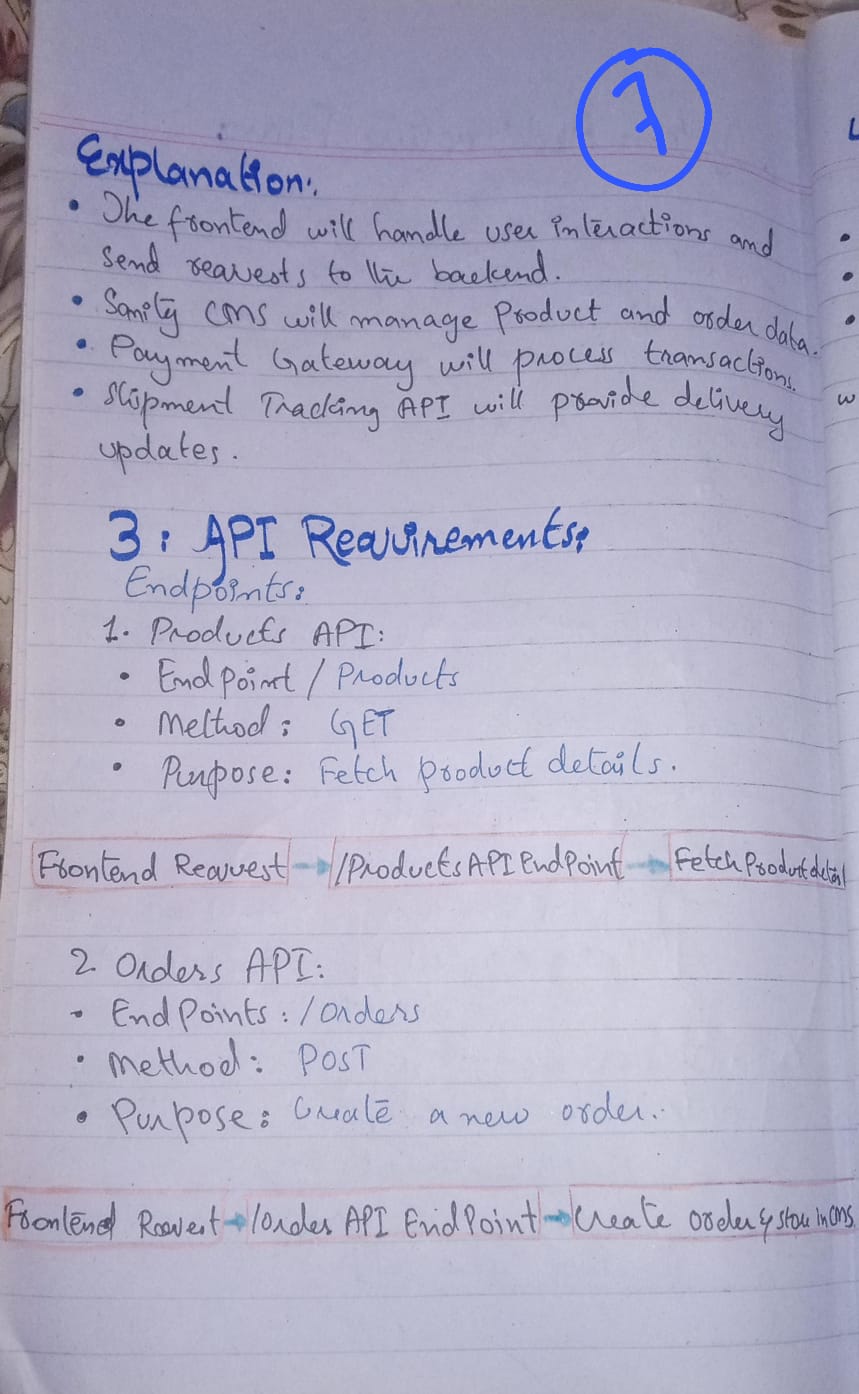 7
Explanation:
• The frontend will handle user interactions and
send reauests to the backend.
• Sanity CMS will manage Product and order data.
• Payment Gateway will process transactions.
• Shipment Tracking API will provide delivery
updates.
3: API Reauirements:
Endpoints:
1. Products API:
• EndPoint / Products
• Method: GET
• Purpose: Fetch product details.
Frontend Reauest → /Products API EndPoint → Fetch Product detail
2. Orders API:
• EndPoints: /Orders
• Method: POST
• Purpose: Create a new order.
Frontend Reauest → /Order API EndPoint → Create order & store in CMS
L
•
•
•
w